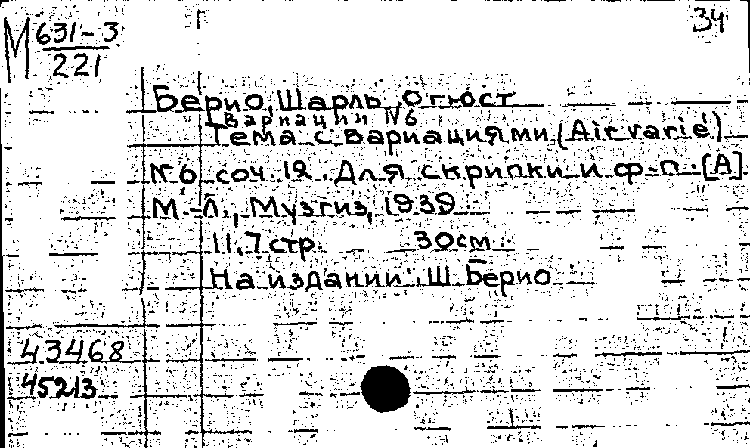 34
М 631-3
221
Берио, Шарль Огюст
[Вариации №6]
Тема с вариациями (Air varié)
№6 соч. 12. Для скрипки и ф.-п. [А]
М.-Л., Музгиз, 1939
11, 7 стр. 30см.
На издании: Ш. Берио
43468
45213